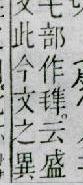 毛部作云盛
文此今文之異